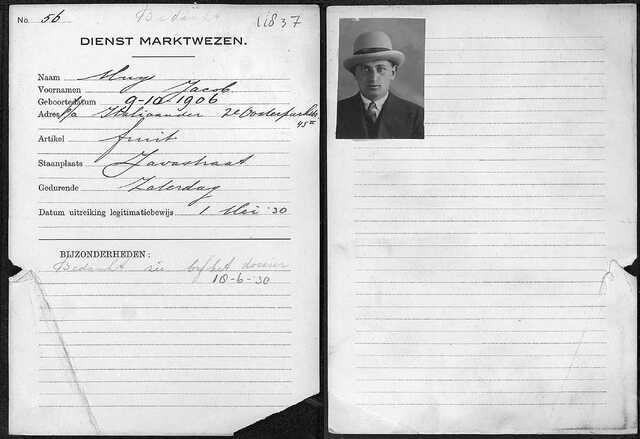 No. 56 Bedankt 11837
DIENST MARKTWEZEN.
Naam Muy
Voornamen Jacob
Geboortedatum 9-10 1906
Adres p/a 2e Oosterparkstr
45 II
Artikel fruit
Staanplaats Javastraat
Gedurende Zaterdag
Datum uitreiking legitimatiebewijs 1 Mei '30
BIJZONDERHEDEN:
Bedankt zie brf het dossier
10-6-30